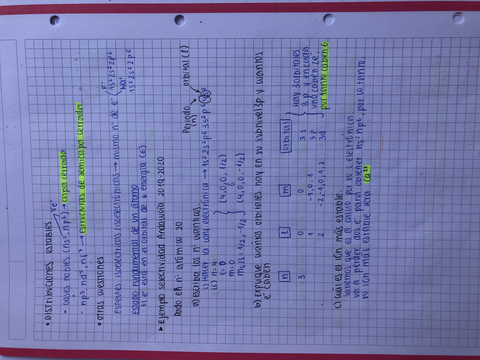 • DISTRIBUCIONES ESTABLES
- Gases nobles (ns², np⁶) → capa cerrada
- np³, nd⁵, nf⁷ → estructuras de semicapa cerradas
• otras cuestiones
especies isoelectrónicas → mismo nº de e⁻
1s² 2s² 2p⁶
1s² 2s² 2p⁶
Estado fundamental de un átomo
► Ejemplo selectividad Andalucía 2019-2020
Dado el nº atómico 20
a) Escriba los nº cuánticos
i) Hacer la conf. electrónica → 1s² 2s² 2p⁶ 3s² 3p⁶ 4s²
ii) n = 4
l = 0
m = 0
ms, s = 1/2, -1/2
(4,0,0, 1/2)
(4,0,0, -1/2)
Periodo (n)
orbital (l)
b) Explique cuántos orbitales hay en su subnivel 3p y cuántos
e⁻ caben
n l m orbital
3 0 0 3s
1 -1, 0, 1 3p
2 -2, -1, 0, 1, 2 3d
Hay 3 orbitales
3p y en cada
uno caben 2e⁻
por tanto caben 6
c) ¿Cuál es el ión más estable?
Sabemos que es el calcio por su c. electrónica
va a perder dos e⁻ para obtener ns² np⁶, por lo tanto,
su ión más estable será Ca²⁺